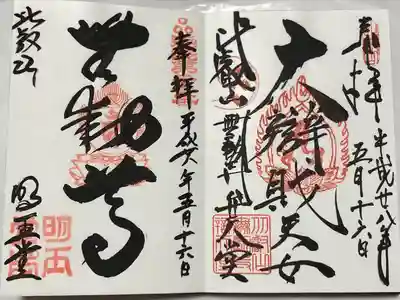 奉拝
平成廿八年
五月十六日
大辯財天女
比叡山 無動寺 弁天堂
奉拝
平成廿八年五月十六日
無動尊
比叡山
明王堂